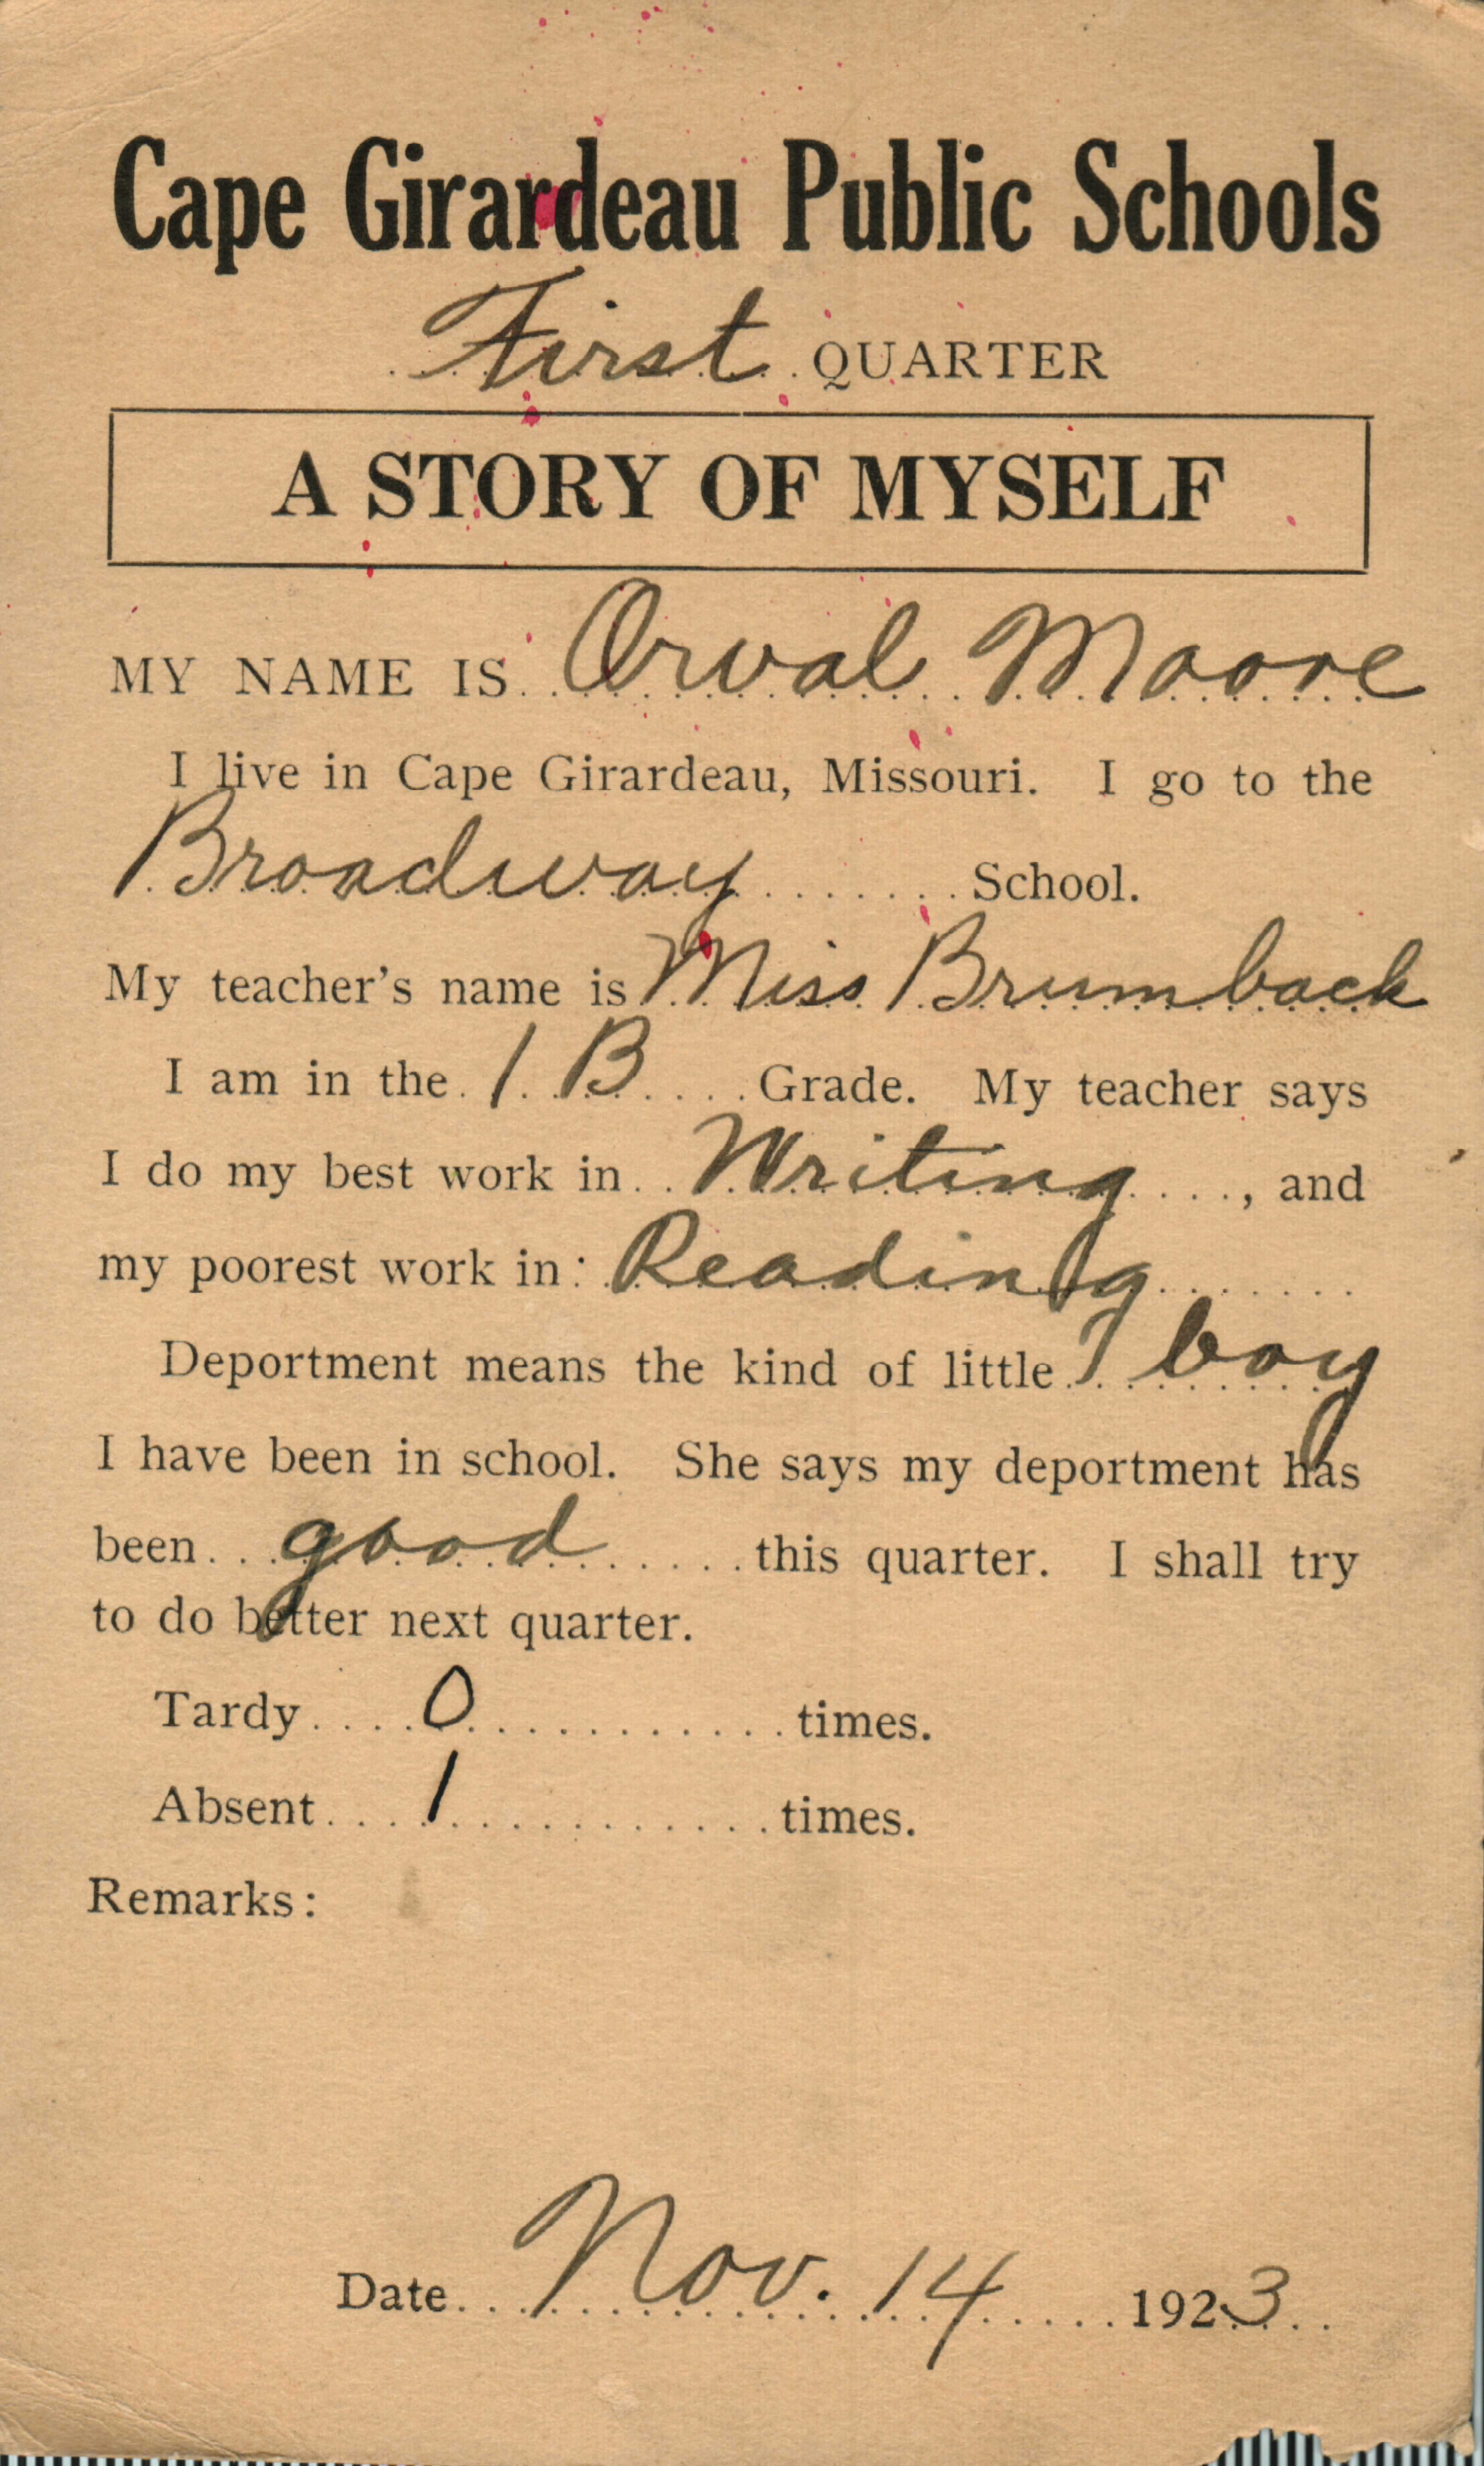 Cape Girardeau Public Schools
First QUARTER
A STORY OF MYSELF
MY NAME IS Orval Moore
I live in Cape Girardeau, Missouri. I go to the
Broadway School.
My teacher's name is Miss Brumback
I am in the 1 B Grade. My teacher says
I do my best work in Writing, and
my poorest work in: Reading
Deportment means the kind of little boy
I have been in school. She says my deportment has
been good this quarter. I shall try
to do better next quarter.
Tardy 0 times.
Absent 1 times.
Remarks:
Date Nov. 14 1923